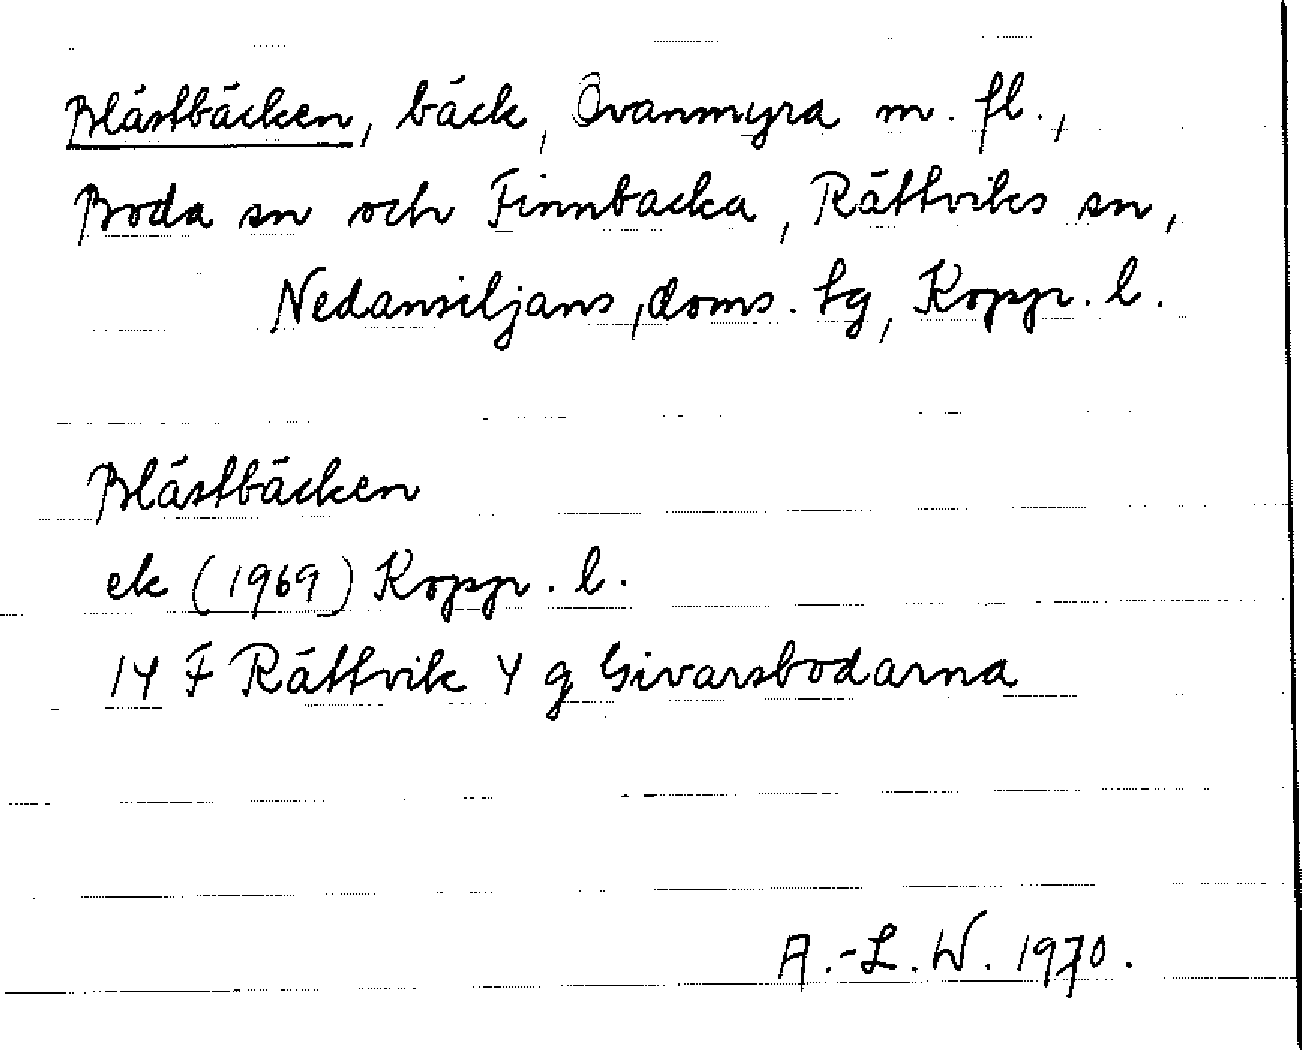 Blästbäcken, bäck, Ovanmyra m. fl.,
Boda sn och Finnbacka, Rättviks sn,
Nedansiljans, doms. tg, Kopp. l.
Blästbäcken
ek (1969) Kopp. l.
14 F Rättvik 4 g Givarsbodarna
A.-L. W. 1970.